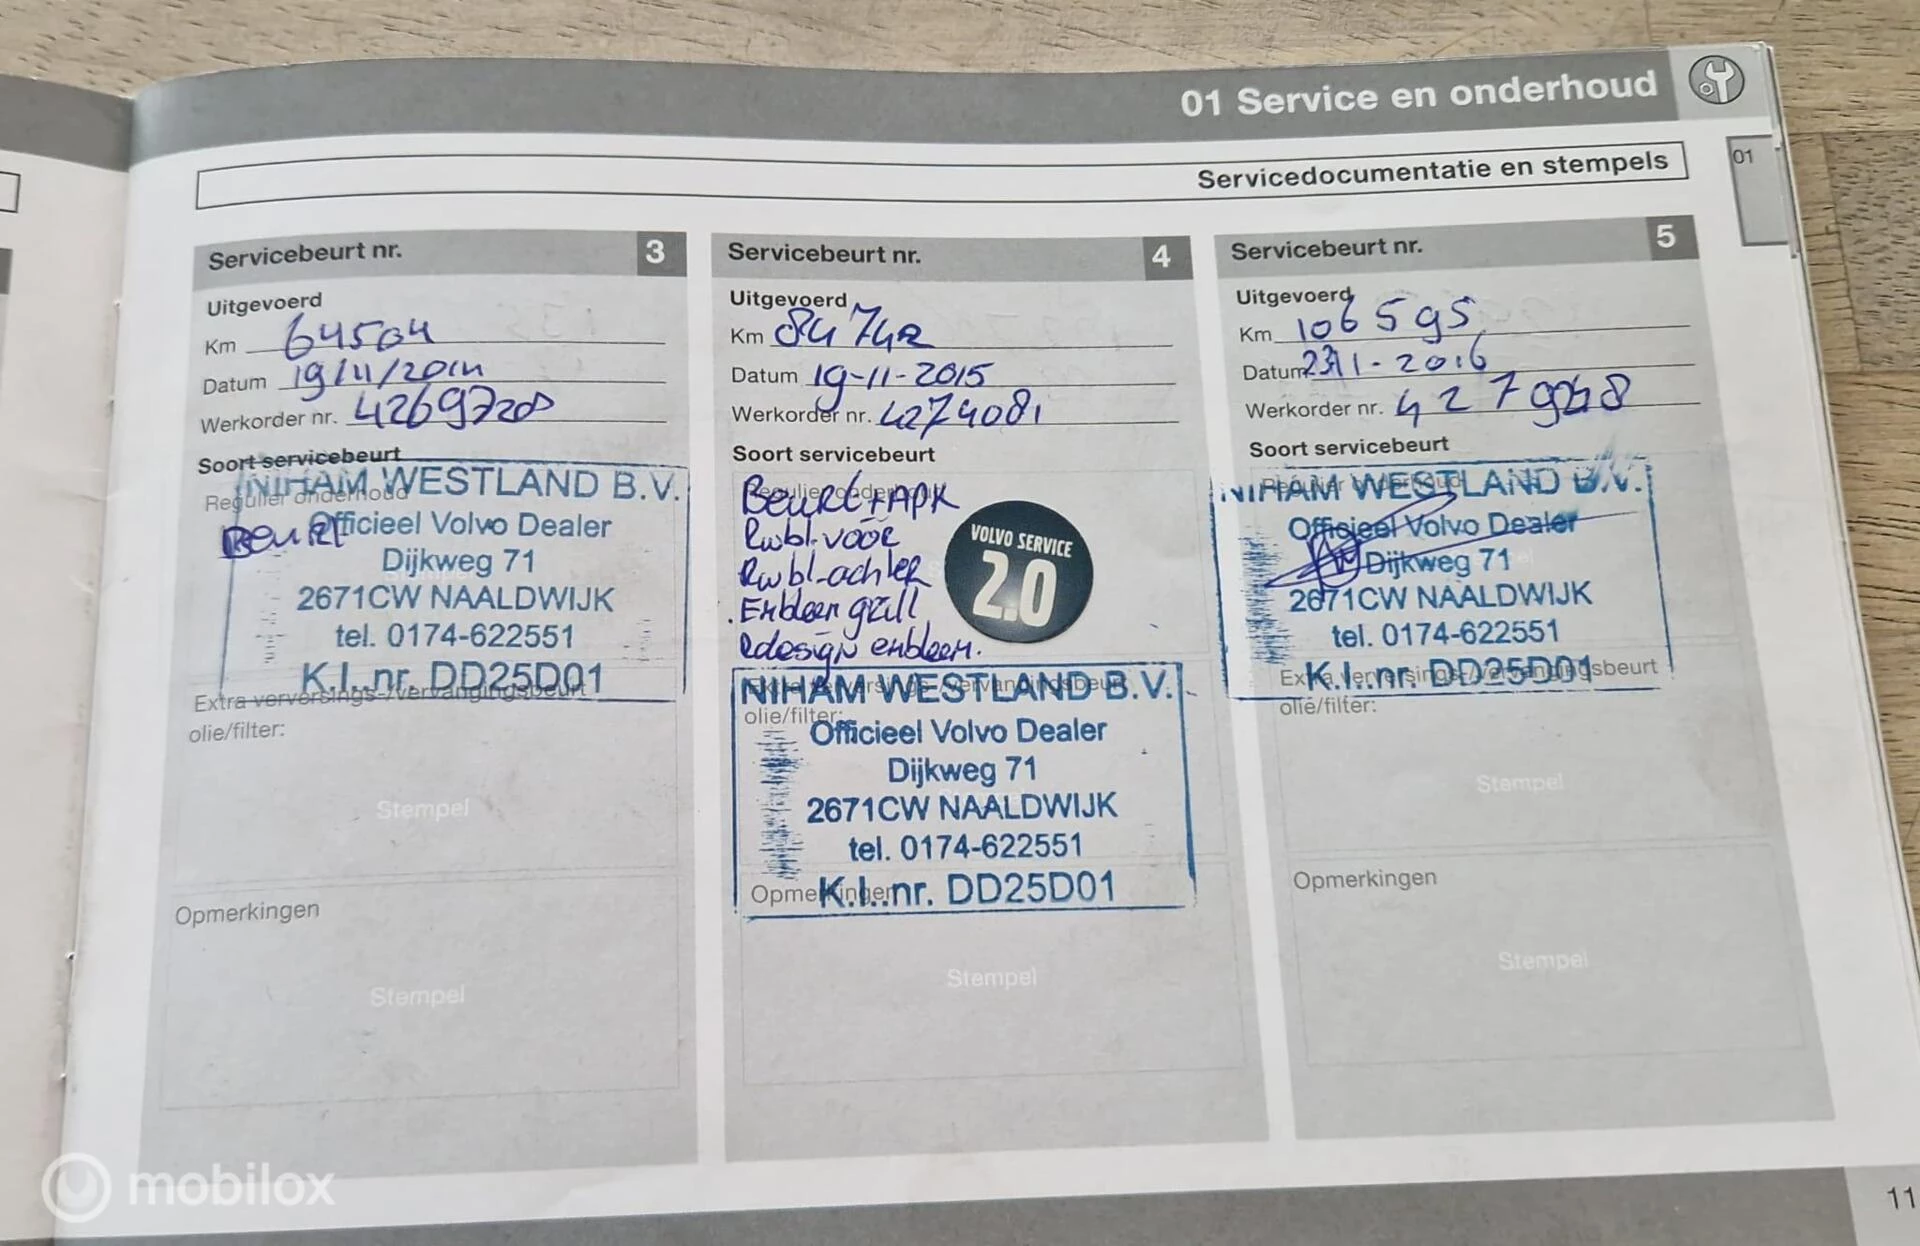 01 Service en onderhoud
01
Servicedocumentatie en stempels
Servicebeurt nr. 3
Uitgevoerd
Km 64504
Datum 19/11/2014
Werkorder nr. 4269720
Soort servicebeurt
Regulier onderhoud
Beurt
NIHAM WESTLAND B.V.
Officieel Volvo Dealer
Dijkweg 71
2671CW NAALDWIJK
tel. 0174-622551
K.I..nr. DD25D01
Extra verversings-/vervangingsbeurt
olie/filter:
Stempel
Opmerkingen
Stempel
Servicebeurt nr. 4
Uitgevoerd
Km 84742
Datum 19-11-2015
Werkorder nr. 4274081
Soort servicebeurt
Regulier onderhoud
Beurt + APK
Rwbl. voor
Rwbl-achter
Embleem grill
Rdesign embleem.
VOLVO SERVICE
2.0
NIHAM WESTLAND B.V.
Extra verversings-/vervangingsbeurt
olie/filter:
Officieel Volvo Dealer
Dijkweg 71
2671CW NAALDWIJK
tel. 0174-622551
K.I..nr. DD25D01
Opmerkingen
Stempel
Servicebeurt nr. 5
Uitgevoerd
Km 106595
Datum 23/11-2016
Werkorder nr.
Soort servicebeurt
Regulier onderhoud
NIHAM WESTLAND B.V.
Officieel Volvo Dealer
Dijkweg 71
2671CW NAALDWIJK
tel. 0174-622551
K.I..nr. DD25D01
Extra verversings-/vervangingsbeurt
olie/filter:
Stempel
Opmerkingen
Stempel
11
mobilox